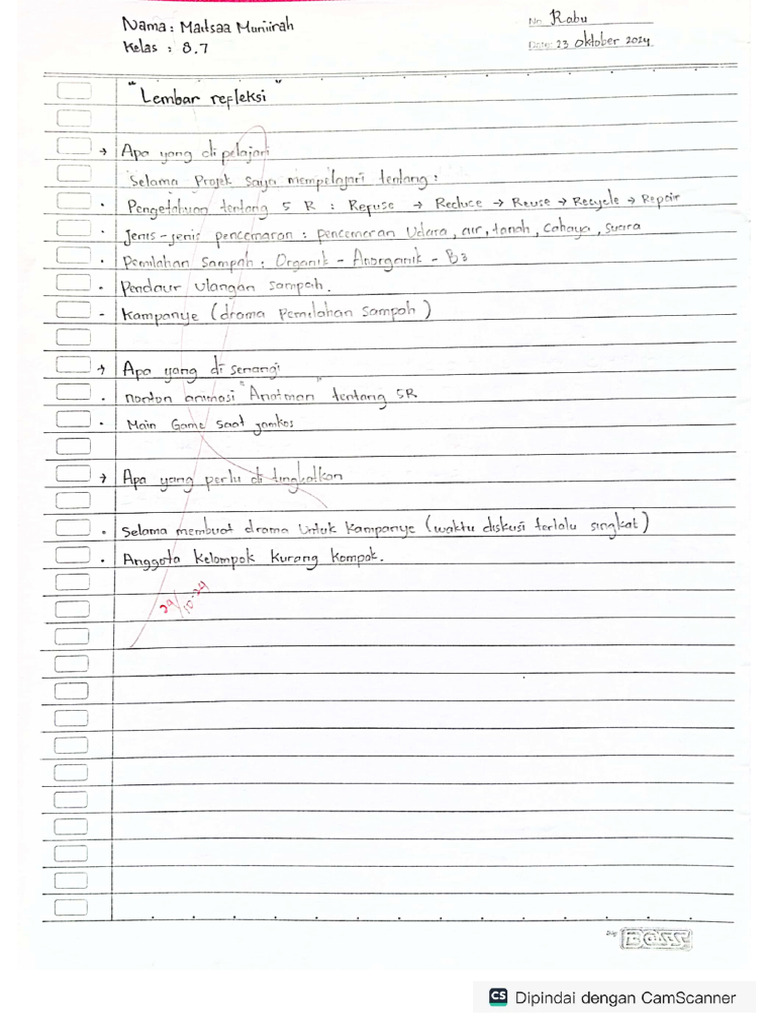 Nama : Maitsaa Muniirah
Kelas : 8.7
No. Rabu
Date: 23 Oktober 2024
"Lembar refleksi"
→ Apa yang di pelajari
Selama Projek saya mempelajari tentang :
• Pengetahuan tentang 5 R : Refuse → Reduce → Reuse → Recycle → Repair
• Jenis-jenis pencemaran : pencemaran Udara, air, tanah, Cahaya, Suara
• Pemilahan Sampah : Organik - Anorganik - B3
• Pendaur ulangan sampah.
- Kampanye (drama Pemilahan Sampah)
→ Apa yang di senangi
• nonton animasi "Anatman" tentang 5R
• Main Game saat jamkos
→ Apa yang perlu di tingkatkan
• Selama membuat drama Untuk Kampanye (waktu diskusi terlalu singkat)
• Anggota Kelompok Kurang Kompak.
29/10-24
BOSS
CS Dipindai dengan CamScanner